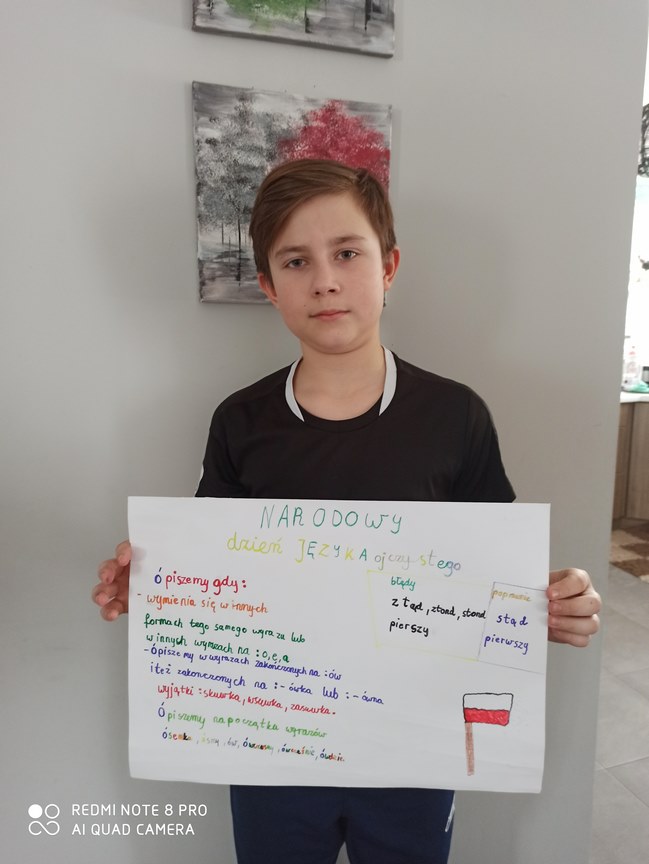 NARODOWY
dzień JĘZYKA ojczystego
ó piszemy gdy:
- wymienia się w innych
formach tego samego wyrazu lub
w innych wyrazach na: o, e, a
- ó piszemy w wyrazach zakończonych na: ów
i też zakończonych na: - ówka lub: - ówna
wyjątki: skuwka, wsuwka, zasuwka.
Ó piszemy na początku wyrazów
ósemka, ósmy, ów, ówczesny, ówcześnie, ówdzie
błędy
z tąd, ztond, stond
pierszy
poprawnie
stąd
pierwszy
REDMI NOTE 8 PRO
AI QUAD CAMERA